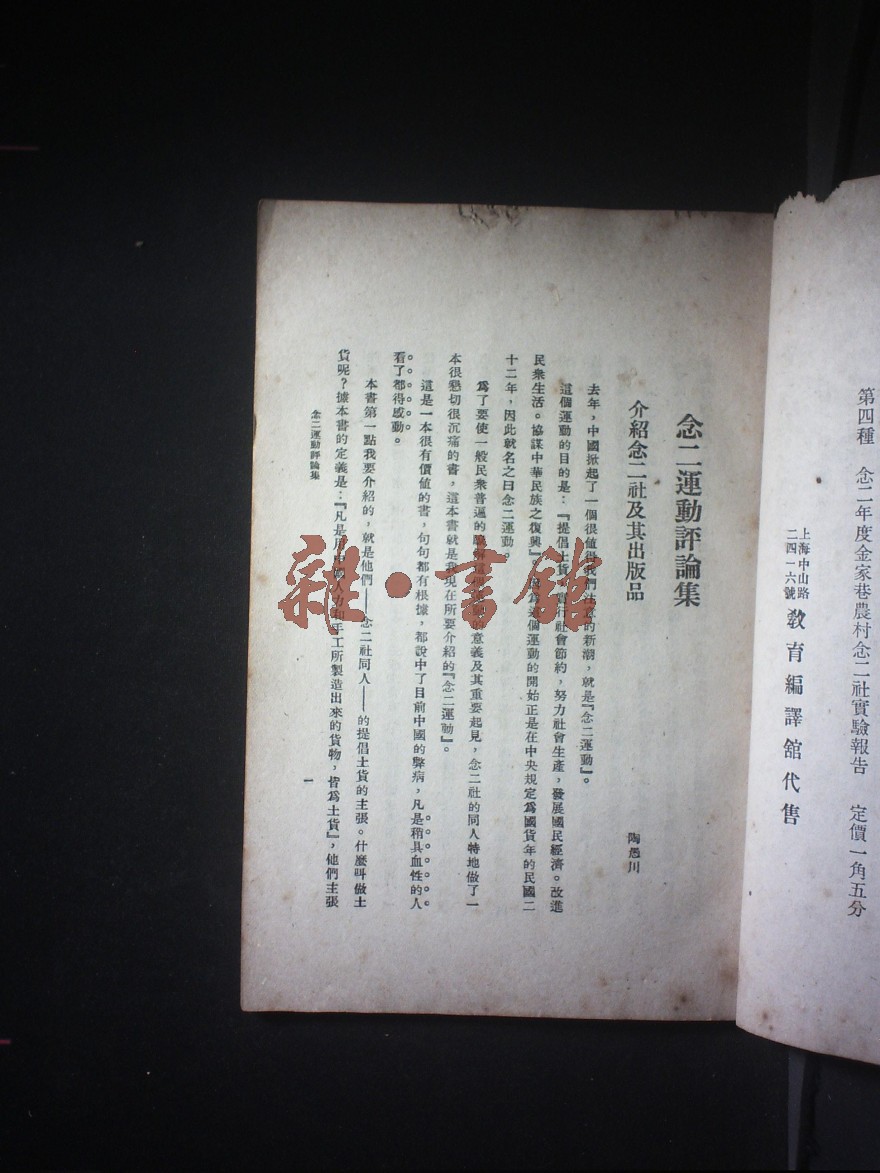 第四種　念二年度金家巷農村念二社實驗報告　定價一角五分
上海中山路
二四一六號
敎育編譯舘代售
念二運動評論集
介紹念二社及其出版品
陶愚川
去年，中國掀起了一個很値得我們注意的新潮，就是『念二運動』。
這個運動的目的是：『提倡土貨，實行社會節約，努力社會生產，發展國民經濟。改進
民衆生活。協謀中華民族之復興』，因爲這個運動的開始正是在中央規定爲國貨年的民國二
十二年，因此就名之曰念二運動。
爲了要使一般民衆普遍的的意義及其重要起見，念二社的同人特地做了一
本很懇切很沉痛的書，這本書就是我現在所要介紹的『念二運動』。
這是一本很有價値的書，句句都有根據，都說中了目前中國的弊病，凡是稍具血性的人
看了都得感動。
本書第一點我要介紹的，就是他們——念二社同人——的提倡土貨的主張。什麼叫做土
貨呢？據本書的定義是：『凡是用中國人力和手工所製造出來的貨物，皆爲土貨』，他們主張
念二運動評論集
一
雜·書館